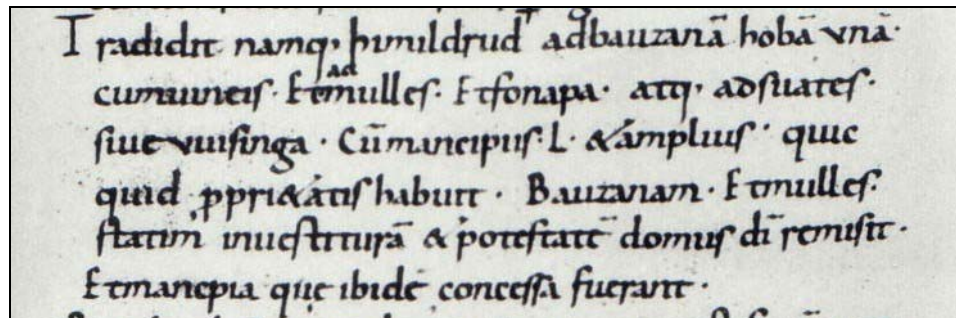 Tradidit namq; himildrud adbauzanā hobā vnā·
cumuineis· Et ad mulles· Et fonapa· atq; adsuates·
siue vuisinga· Cū mancipiis· L· &ampluis· quic
quid ꝓpri&atis habuit· Bauzanam· Et mulles·
statim inuestiturā & potestatē domus dī remisit·
Et mancipia quę ibidē concessa fuerant·